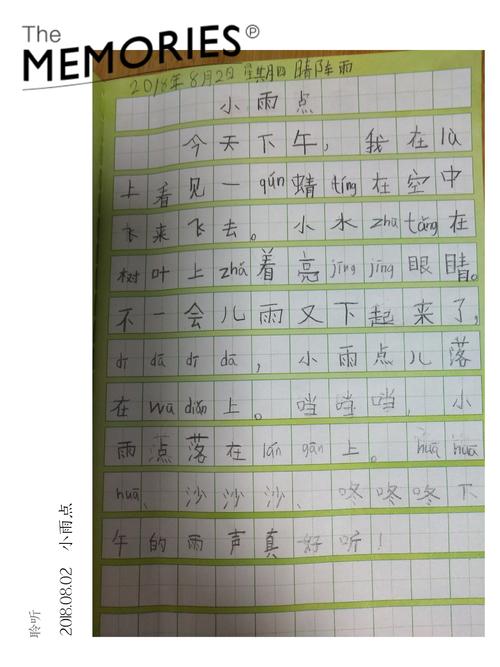 The
MEMORIES℗
2018年8月2日 星期四 晴阵雨
小雨点
今天下午，我在lù
上看见一qún蜻tíng在空中
飞来飞去。小水zhū tǎng在
树叶上zhǎ着亮jīng jīng眼睛。
不一会儿雨又下起来了，
dī dā dī dā，小雨点儿落
在wā diǎn上。当当当，小
雨点落在lán gān上。huā huā
huā、沙沙沙、咚咚咚下
午的雨声真好听！
2018.08.02 小雨点
聆听